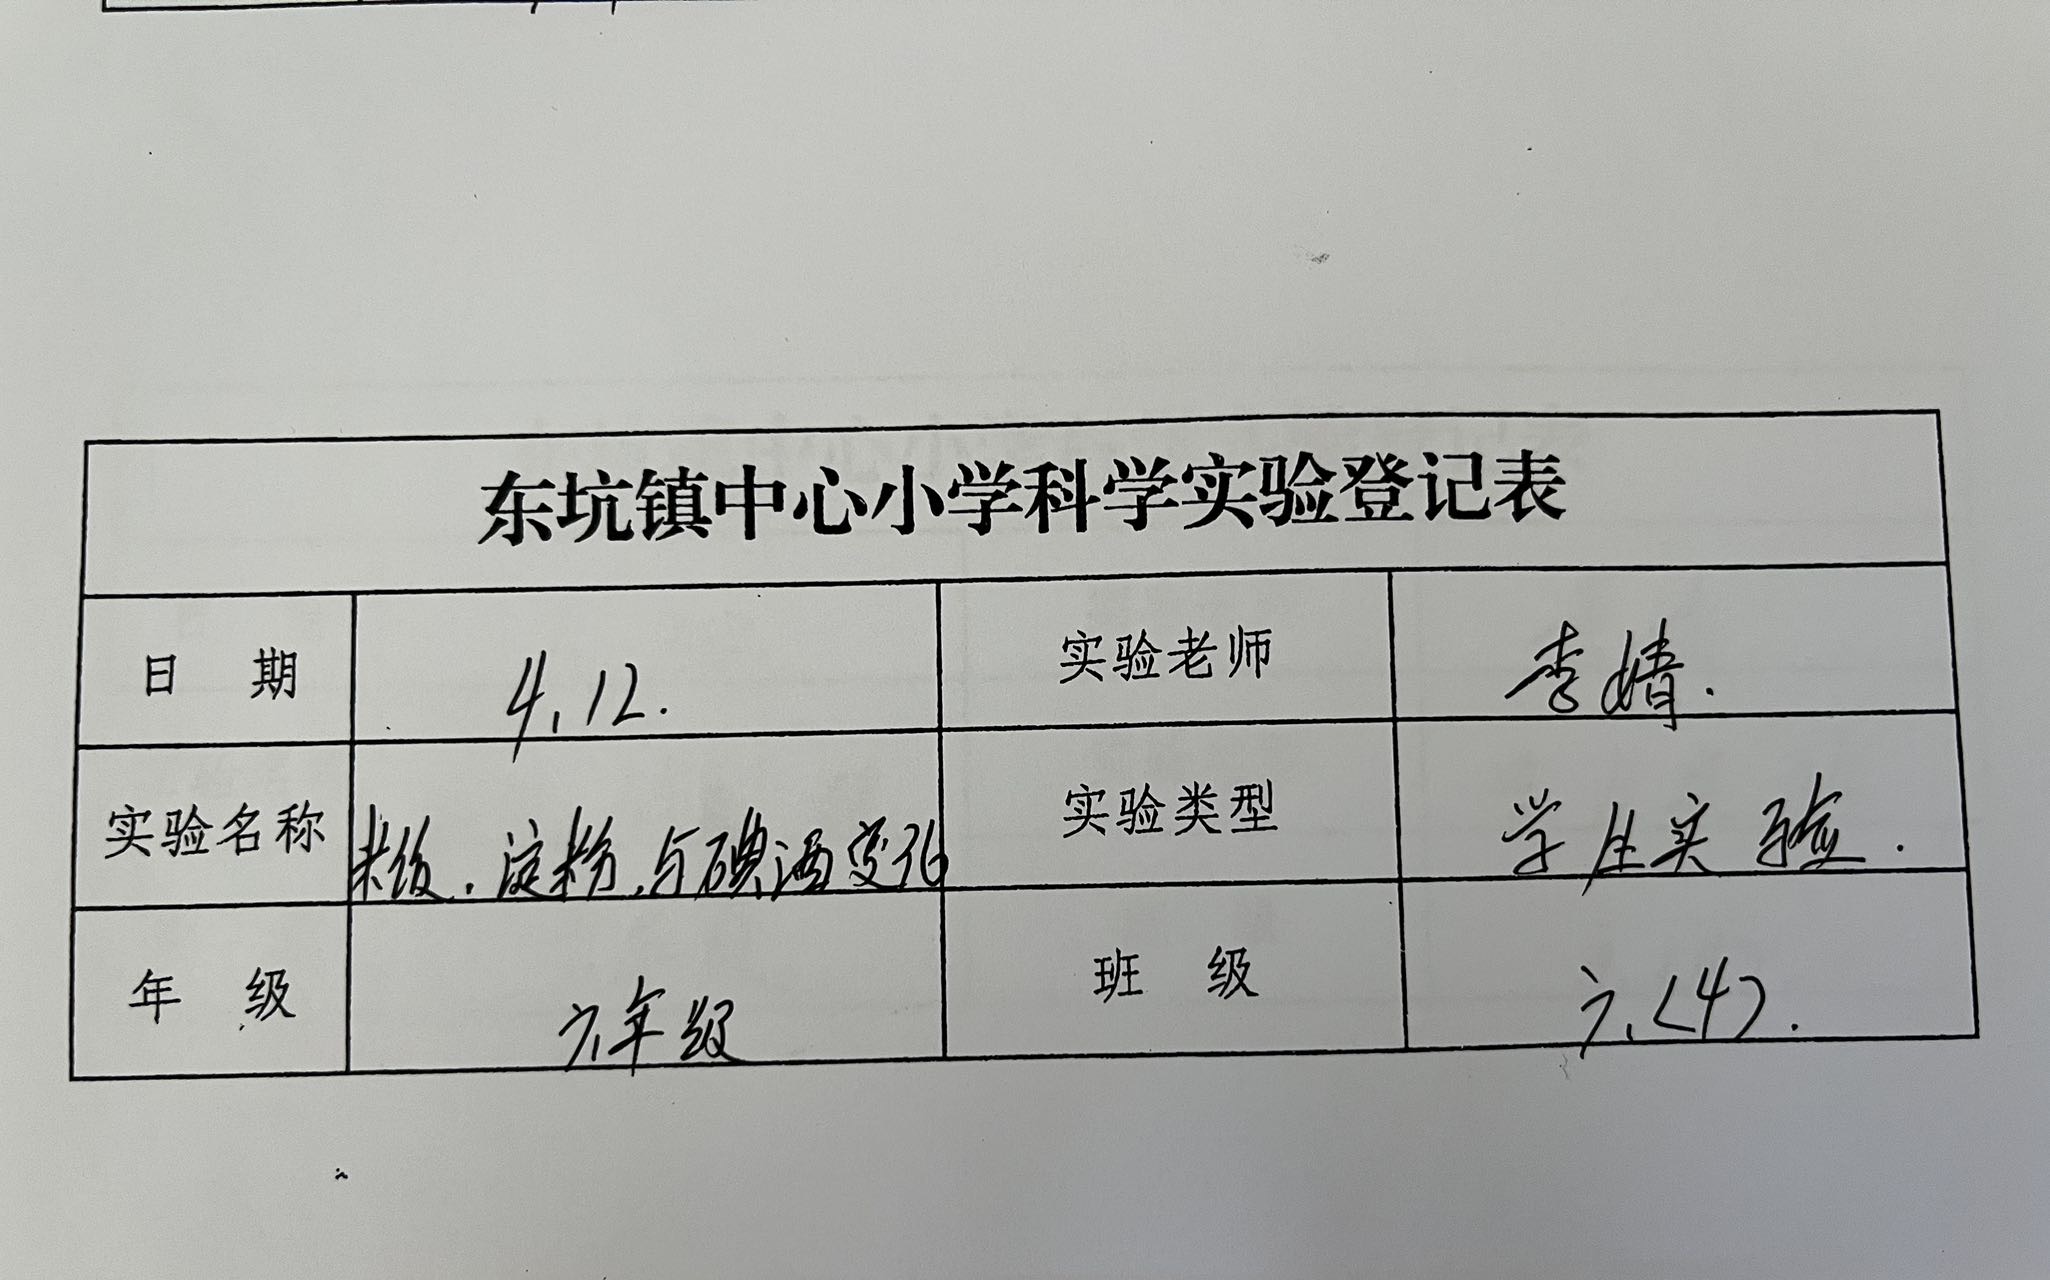 东坑镇中心小学科学实验登记表
日 期 4.12. 实验老师 李婧.
实验名称 米饭.淀粉.与碘酒变化 实验类型 学生实验.
年 级 六年级 班 级 六.(4).